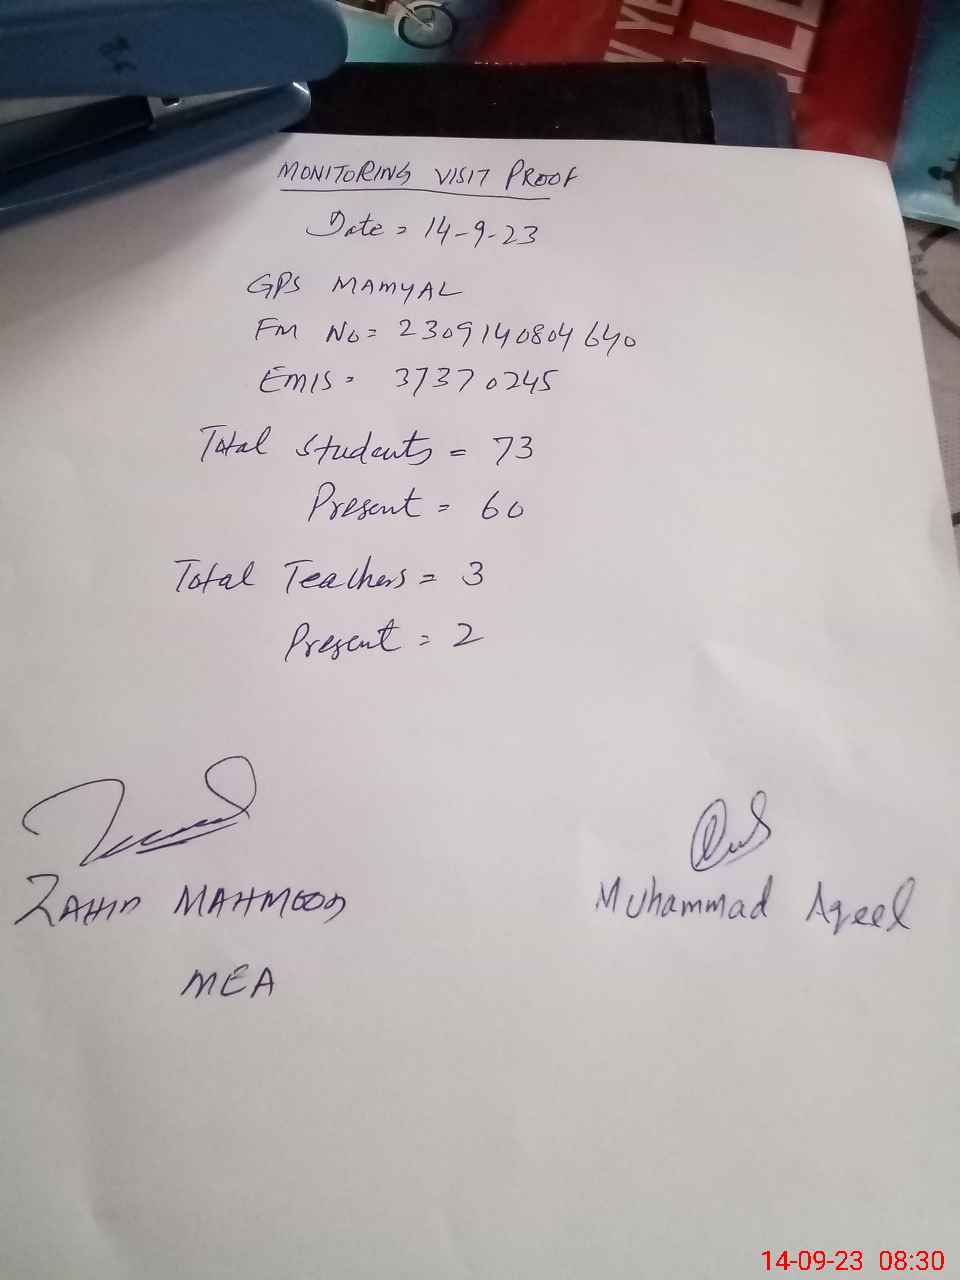 MONITORING VISIT PROOF
Date = 14-9-23
GPS MAMYAL
FM No = 2309140804640
EMIS = 37370245
Total Students = 73
Present = 60
Total Teachers = 3
Present = 2
ZAHID MAHMOOD
Muhammad Aqeel
MEA
14-09-23 08:30